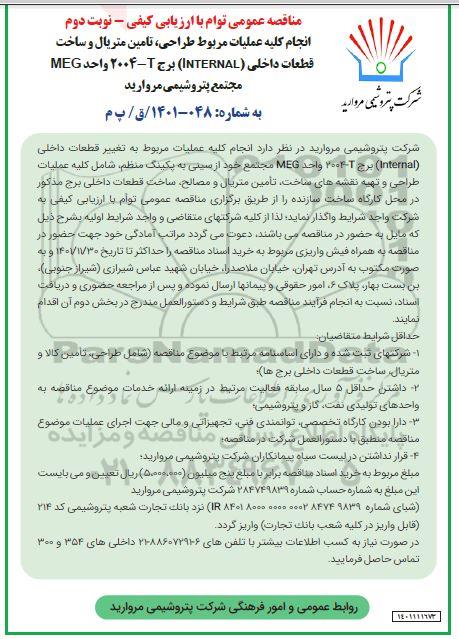 مناقصه عمومی توام با ارزیابی کیفی – نوبت دوم
انجام کلیه عملیات مربوط طراحی، تامین متریال و ساخت
قطعات داخلی (INTERNAL) برج T-۲۰۰۴ واحد MEG
مجتمع پتروشیمی مروارید
به شماره: ۰۴۸-۱۴۰۱/ق/ پ م
شرکت پتروشیمی مروارید
شرکت پتروشیمی مروارید در نظر دارد انجام کلیه عملیات مربوط به تغییر قطعات داخلی
(Internal) برج T-۲۰۰۴ واحد MEG مجتمع خود از سینی به پکینگ منظم، شامل کلیه عملیات
طراحی و تهیه نقشه های ساخت، تأمین متریال و مصالح، ساخت قطعات داخلی برج مذکور
در محل کارگاه ساخت سازنده را از طریق برگزاری مناقصه عمومی توأم با ارزیابی کیفی به
شرکت واجد شرایط واگذار نماید؛ لذا از کلیه شرکتهای متقاضی و واجد شرایط اولیه بشرح ذیل
که مایل به حضور در مناقصه می باشند، دعوت می گردد مراتب آمادگی خود جهت حضور در
مناقصه به همراه فیش واریزی مربوط به خرید اسناد مناقصه را حداکثر تا تاریخ ۱۴۰۱/۱۱/۳۰ و به
صورت مکتوب به آدرس تهران، خیابان ملاصدرا، خیابان شهید عباس شیرازی (شیراز جنوبی)،
بن بست بهار، پلاک ۶، امور حقوقی و پیمانها ارسال نموده و پس از مراجعه حضوری و دریافت
اسناد، نسبت به انجام فرآیند مناقصه طبق شرایط و دستورالعمل مندرج در بخش دوم آن اقدام
نمایند.
حداقل شرایط متقاضیان:
۱- شرکتهای ثبت شده و دارای اساسنامه مرتبط با موضوع مناقصه (شامل طراحی، تأمین کالا و
متریال، ساخت قطعات داخلی برج ها)؛
۲- داشتن حداقل ۵ سال سابقه فعالیت مرتبط در زمینه ارائه خدمات موضوع مناقصه به
واحدهای تولیدی نفت، گاز و پتروشیمی؛
۳- دارا بودن کارگاه تخصصی، توانمندی فنی، تجهیزاتی و مالی جهت اجرای عملیات موضوع
مناقصه منطبق با دستورالعمل شرکت در مناقصه؛
۴- قرار نداشتن در لیست سیاه پیمانکاران شرکت پتروشیمی مروارید؛
مبلغ مربوط به خرید اسناد مناقصه برابر با مبلغ پنج میلیون (۵،۰۰۰،۰۰۰) ریال تعیین و می بایست
این مبلغ به شماره حساب شماره ۲۸۴۷۴۹۸۳۹ شرکت پتروشیمی مروارید
(شبای شماره IR 8401 8000 0000 0002 8474 9839) نزد بانک تجارت شعبه پتروشیمی کد ۲۱۴
(قابل واریز در کلیه شعب بانک تجارت) واریز گردد.
در صورت نیاز به کسب اطلاعات بیشتر با تلفن های ۶-۸۸۶۰۷۲۹۱-۰۲۱ داخلی های ۳۵۴ و ۳۰۰
تماس حاصل فرمایید.
روابط عمومی و امور فرهنگی شرکت پتروشیمی مروارید
۱۴۰۱۱۱۱۶۷۳
ParsNamadData